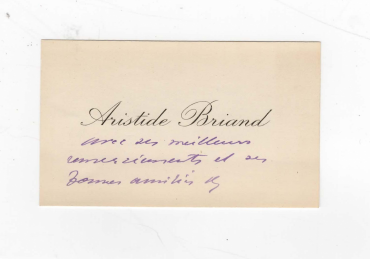 Aristide Briand
avec ses meilleurs
remerciements et ses
bonnes amitiés